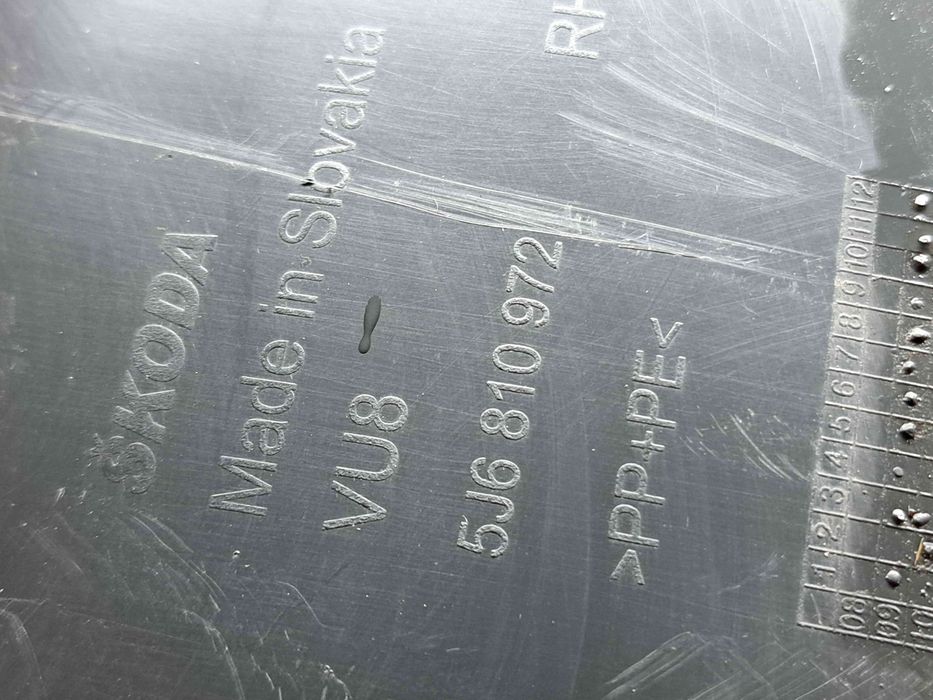 RH
ŠKODA
Made in Slovakia
VU8
5J6 810 972
>PP+PE<
1 2 3 4 5 6 7 8 9 10 11 12
08
09